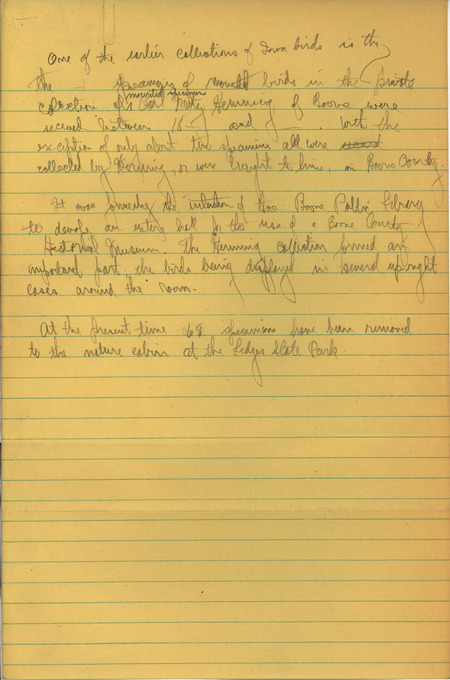 One of the earlier collections of Iowa birds is the
the specimens of mounted birds in the private
mounted specimens
collection of Carl Fritz Henning of Boone were
secured between 18 - and - . With the
exception of only about two specimens all were
collected by Henning, or were brought to him, in Boone County.
It was formerly the intention of the Boone Public Library
to devote an entire hall for the use of a Boone County
Historical Museum. The Henning collection formed an
important part, the birds being displayed in several upright
cases around the room.
At the present time 68 specimens have been removed
to the nature cabin at the Ledges State Park.